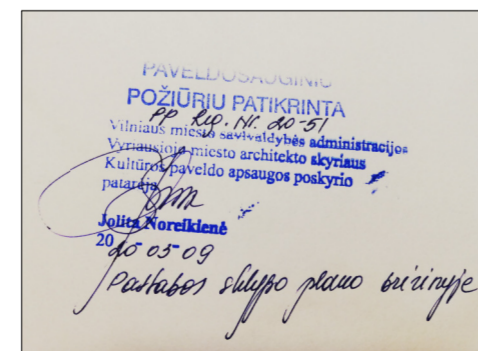 PAVELDOSAUGINIU
POŽIŪRIU PATIKRINTA
PP Reg. Nr. 20-51
Vilniaus miesto savivaldybės administracijos
Vyriausiojo miesto architekto skyriaus
Kultūros paveldo apsaugos poskyrio
patarėja
Jolita Noreikienė
2020-05-09
Pastabos sklypo plano brėžinyje